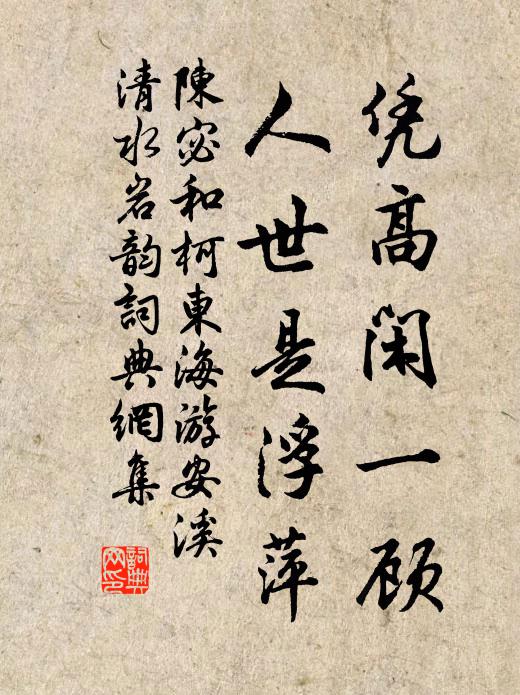 凭高闲一顾
人世是浮萍
陳宓和柯東海游安溪
清水岩韵詞典網集
詞典网印